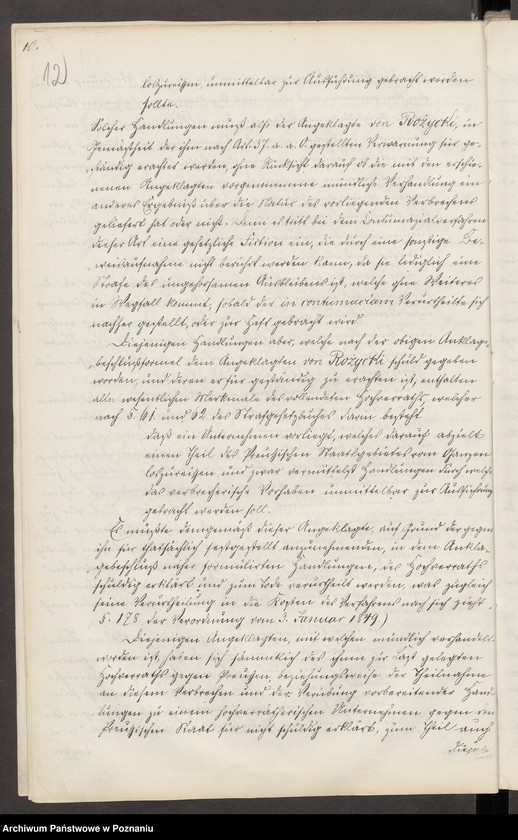 10.
12)
loszureißen, unmittelbar zur Ausführung gebracht werden
sollte.
Solcher Handlungen muß also der Angeklagte von Rożycki, in
Gemäßheit der ihm nach Art. 37. a. a. O. gestellten Verwarnung für ge-
ständig erachtet werden, ohne Rücksicht darauf ob die mit den erschie-
nenen Angeklagten vorgenommene mündliche Verhandlung ein
anderes Ergebniß über die Natur des vorliegenden Verbrechens
geliefert hat oder nicht. Denn es tritt bei dem Contumazialverfahren
dieser Art eine gesetzliche Fiction ein, die durch eine sonstige Be-
weisaufnahme nicht berührt werden kann, da sie lediglich eine
Strafe des ungehorsamen Ausbleibens ist, welche ohne Weiteres
in Wegfall kommt, sobald der in contumaciam Verurtheilte sich
nachher gestellt, oder zur Haft gebracht wird.
Diejenigen Handlungen aber, welche nach der obigen Anklage-
beschlußformel dem Angeklagten von Rożycki schuld gegeben
worden, und deren er für geständig zu erachten ist, enthalten
alle wesentlichen Merkmale des vollendeten Hochverraths, welcher
nach §. 61. und 62. des Strafgesetzbuches darin besteht
daß ein Unternehmen vorliegt, welches darauf abzielt
einen Theil des Preußischen Staatsgebietes vom Ganzen
loszureißen, und zwar vermittelst Handlungen durch welche
das verbrecherische Vorhaben unmittelbar zur Ausführung
gebracht werden soll.
Es mußte demgemäß dieser Angeklagte, auf Grund der gegen
ihn für thatsächlich festgestellt anzunehmenden, in dem Ankla-
gebeschluß näher formulirten Handlungen, des Hochverraths
schuldig erklärt und zum Tode verurtheilt werden, was zugleich
seine Verurtheilung in die Kosten des Verfahrens nach sich zieht.
§. 178. der Verordnung vom 3. Januar 1849.)
Diejenigen Angeklagten, mit welchen mündlich verhandelt
worden ist, haben sich sämmtlich des ihnen zur Last gelegten
Hochverraths gegen Preußen, beziehungsweise der Theilnahme
an diesem Verbrechen und der Verübung vorbereitender Hand-
lungen zu einem hochverrätherischen Unternehmen gegen den
Preußischen Staat für nicht schuldig erklärt, zum Theil auch
Archiwum Państwowe w Poznaniu